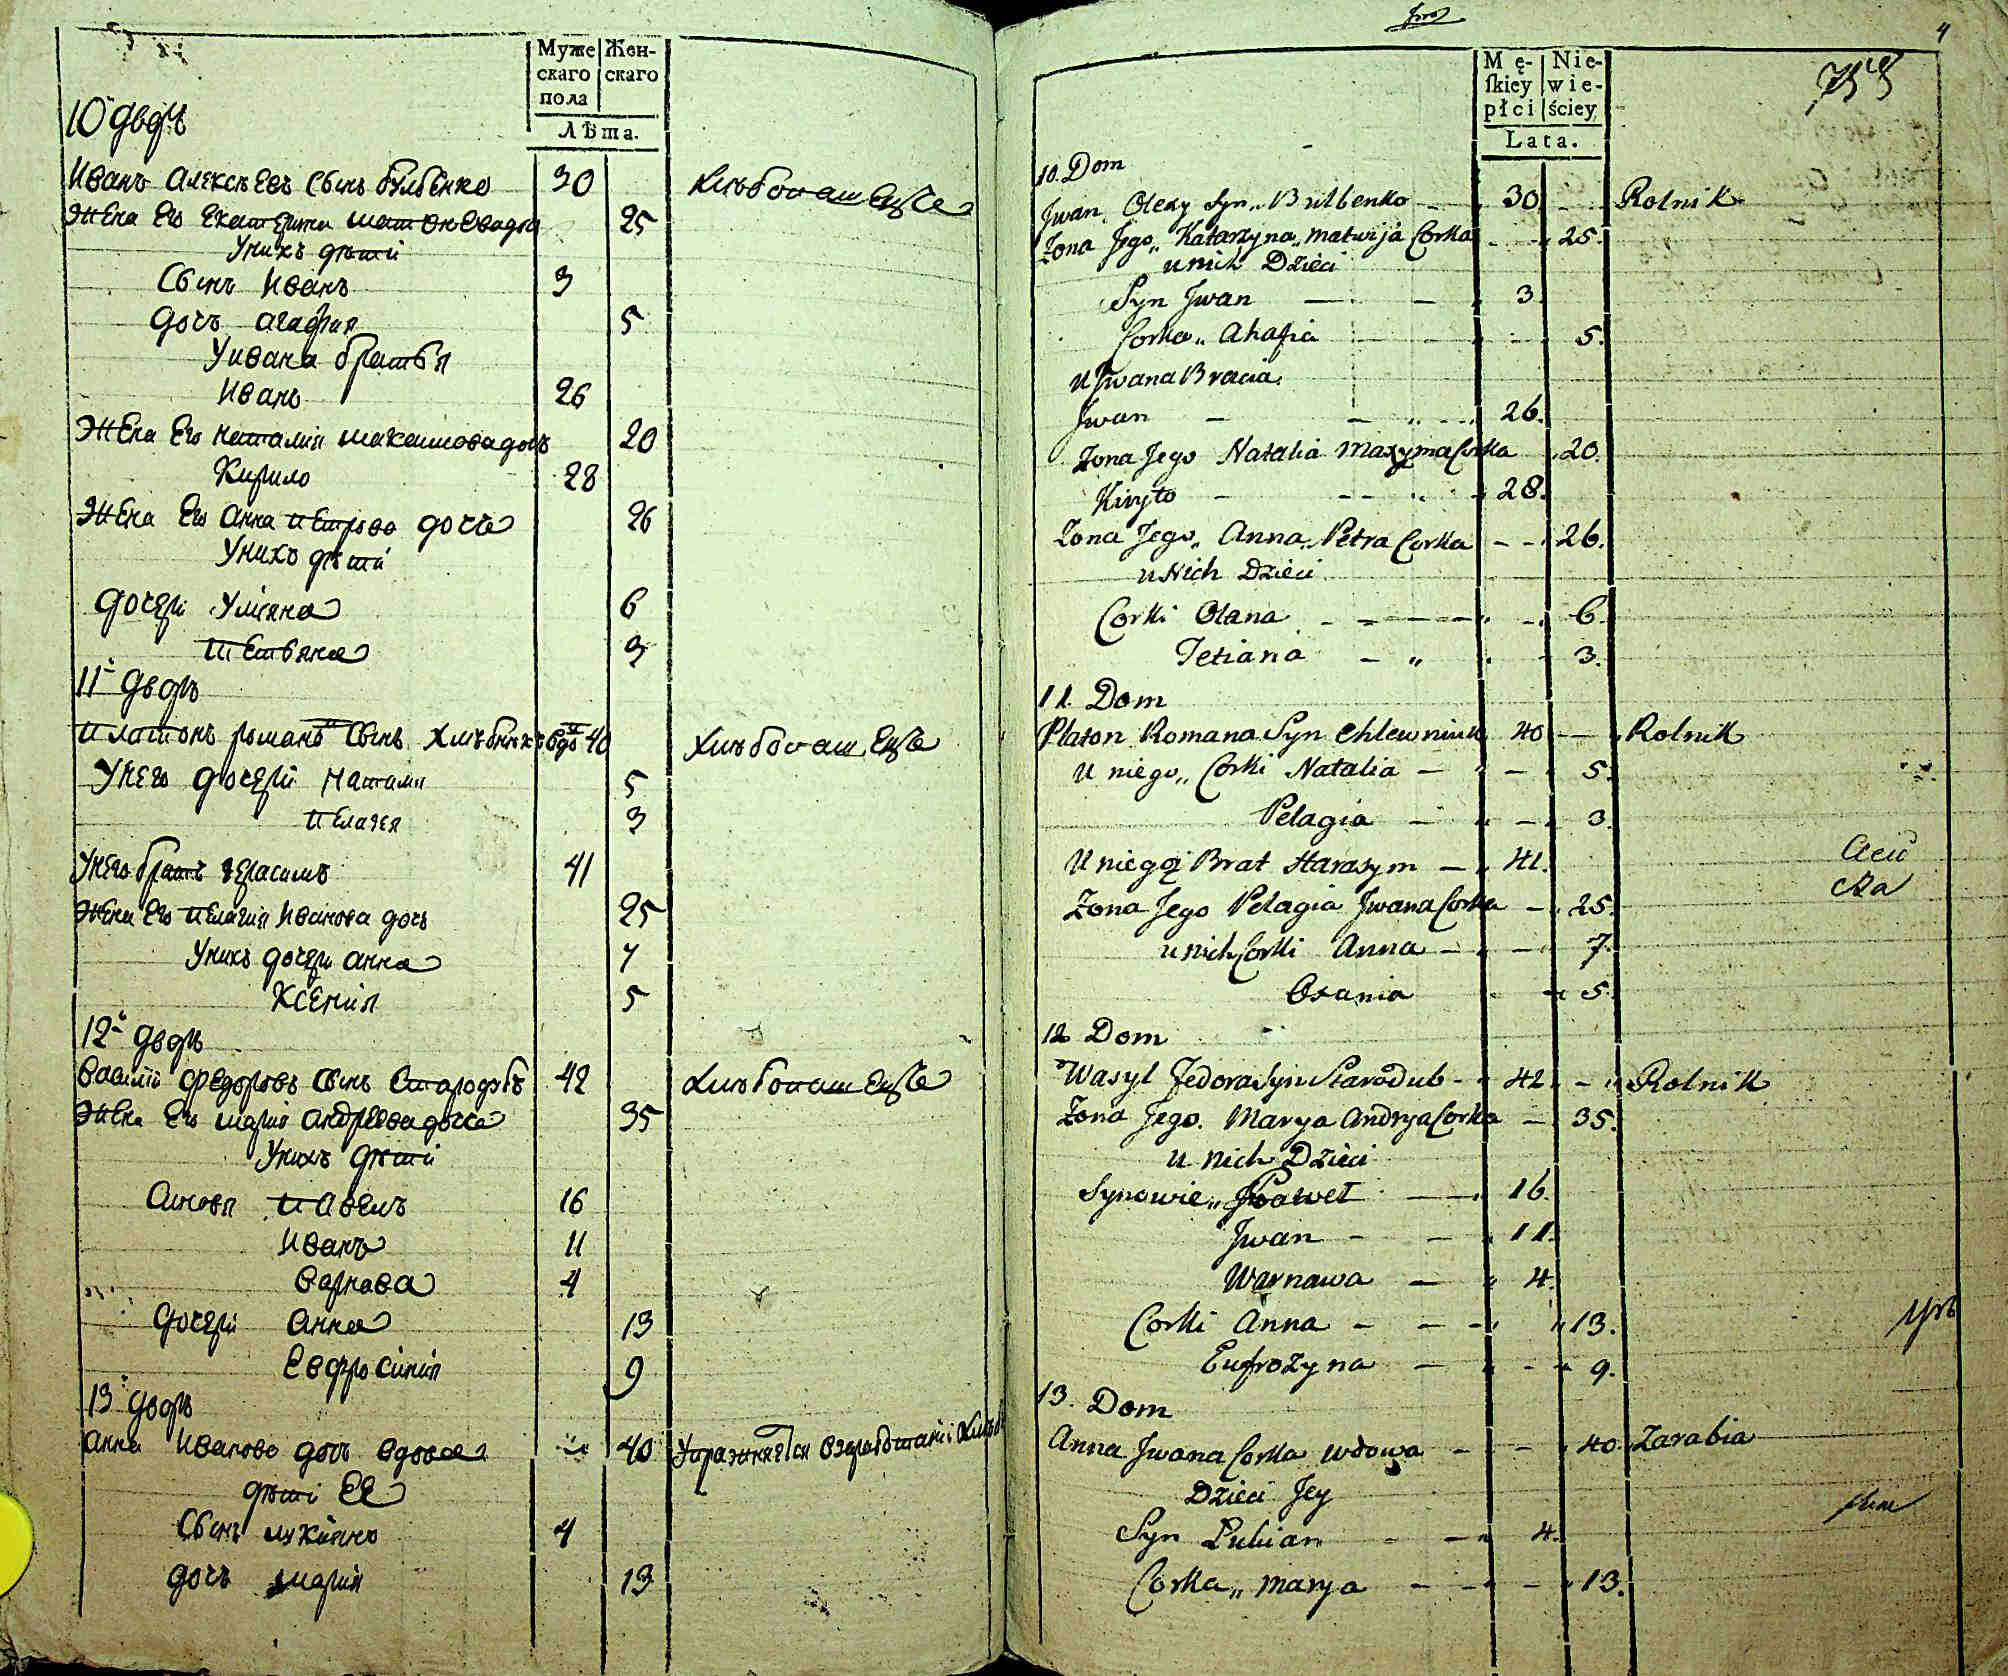 Муже Жен-
скаго скаго
пола
Лѣта.
10 дворъ
Иванъ Алексѣевъ Сынъ булбенко 30 Хлѣбопашецъ
Жена Его Екатерина 25
У нихъ дѣти
Сынъ Иванъ 3
дочь агафия 5
У ивана братья
Иванъ 26
Жена Его наталия максимова дочь 20
Кирило 28
Жена Его Анна петрова дочь 26
У нихъ дѣти
дочери Улияна 6
тетьяна 3
11 дворъ
платонъ романовъ Сынъ 40 Хлѣбопашецъ
У него дочери Наталия 5
пелагея 3
У него братъ герасимъ 41
Жена Его пелагия Иванова дочь 25
У нихъ дочери анна 7
Ксения 5
12 дворъ
василий федоровъ Сынъ Стародубъ 42 Хлѣбопашецъ
Жена Его мария андреева дочь 35
У нихъ дѣти
Синовя павелъ 16
Иванъ 11
варнава 4
дочери Анна 13
Евфросиния 9
13 дворъ
Анна Иванова дочь вдова 40 Упражняется
дѣти ЕЕ
Сынъ лукиянъ 4
дочь мария 13
4
Mę- Nie-
skiey wie-
płci ściey
Lata.
10. Dom
Jwan Olexy Syn Bulbenko 30 Rolnik
Zona Jego Katarzyna matwija Corka 25.
u nich Dzieci
Syn Jwan 3
Corka Ahafia 5.
U Jwana Bracia
Jwan 26.
Zona Jego Natalia Maxyma Corka 20.
Kiryło 28.
Zona Jego Anna Petra Corka 26.
u Nich Dzieci
Corki Olana 6.
Tetiana 3.
11. Dom
Platon Romana Syn Chlewniuk 40 Rolnik
U niego Corki Natalia 5.
Pelagia 3.
U niego Brat Harasym 41.
Zona Jego Pelagia Jwana Corka 25.
u nich Corki Anna 7.
Oxania 5.
12 Dom
Wasyl Fedora Syn Starodub 42 Rolnik
Zona Jego Marya Andryja Corka 35.
u Nich Dzieci
Synowie Paweł 16.
Jwan 11.
Warnawa 4.
Corki Anna 13.
Eufrozyna 9.
13. Dom
Anna Jwana Corka wdowa 40. Zarabia
Dzieci Jey
Syn Lukian 4.
Corka marya 13.